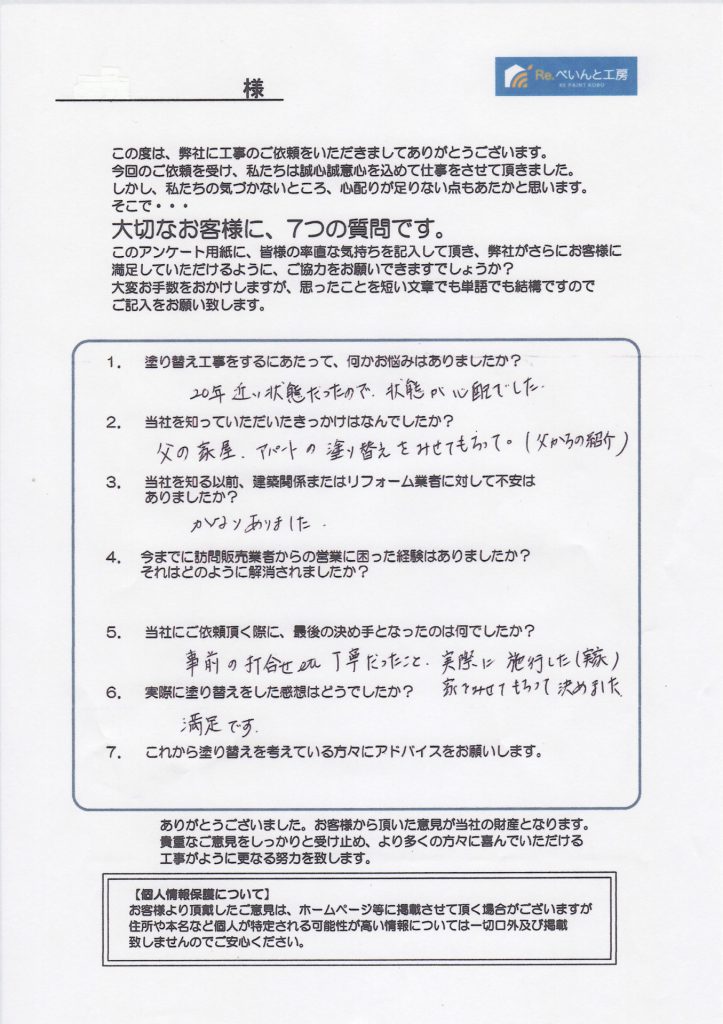 様
Re.ぺいんと工房
RE PAINT KOBO
この度は、弊社に工事のご依頼をいただきましてありがとうございます。
今回のご依頼を受け、私たちは誠心誠意心を込めて仕事をさせて頂きました。
しかし、私たちの気づかないところ、心配りが足りない点もあたかと思います。
そこで・・・
大切なお客様に、7つの質問です。
このアンケート用紙に、皆様の率直な気持ちを記入して頂き、弊社がさらにお客様に
満足していただけるように、ご協力をお願いできますでしょうか？
大変お手数をおかけしますが、思ったことを短い文章でも単語でも結構ですので
ご記入をお願い致します。
1. 塗り替え工事をするにあたって、何かお悩みはありましたか？
20年近い状態だったので、状態が心配でした.
2. 当社を知っていただいたきっかけはなんでしたか？
父の家屋、アパートの塗り替えをみせてもらって。(父からの紹介)
3. 当社を知る以前、建築関係またはリフォーム業者に対して不安は
ありましたか？
かなりありました.
4. 今までに訪問販売業者からの営業に困った経験はありましたか？
それはどのように解消されましたか？
5. 当社にご依頼頂く際に、最後の決め手となったのは何でしたか？
事前の打合せetc 丁寧だったこと. 実際に施行した(実家)
家をみせてもらって決めました
6. 実際に塗り替えをした感想はどうでしたか？
満足です.
7. これから塗り替えを考えている方々にアドバイスをお願いします。
ありがとうございました。お客様から頂いた意見が当社の財産となります。
貴重なご意見をしっかりと受け止め、より多くの方々に喜んでいただける
工事がように更なる努力を致します。
【個人情報保護について】
お客様より頂戴したご意見は、ホームページ等に掲載させて頂く場合がございますが
住所や本名など個人が特定される可能性が高い情報については一切口外及び掲載
致しませんのでご安心ください。